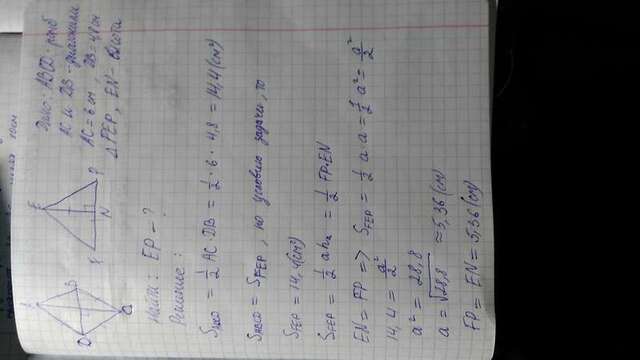 Дано: ABCD - ромб
AC и DB - диагонали
AC = 6 см, DB = 4,8 см
△FEP, EN - высота
A
B
C
D
E
F
N
P
Найти: EP - ?
Решение:
S_ABCD = 1/2 AC · DB = 1/2 · 6 · 4,8 = 14,4 (см²)
S_ABCD = S_FEP, по условию задачи, то
S_FEP = 14,4 (см²)
S_FEP = 1/2 a h_a = 1/2 FP · EN
EN = FP => S_FEP = 1/2 a · a = 1/2 a² = a²/2
14,4 = a²/2
a² = 28,8
a = √28,8 ≈ 5,36 (см)
FP = EN = 5,36 (см)